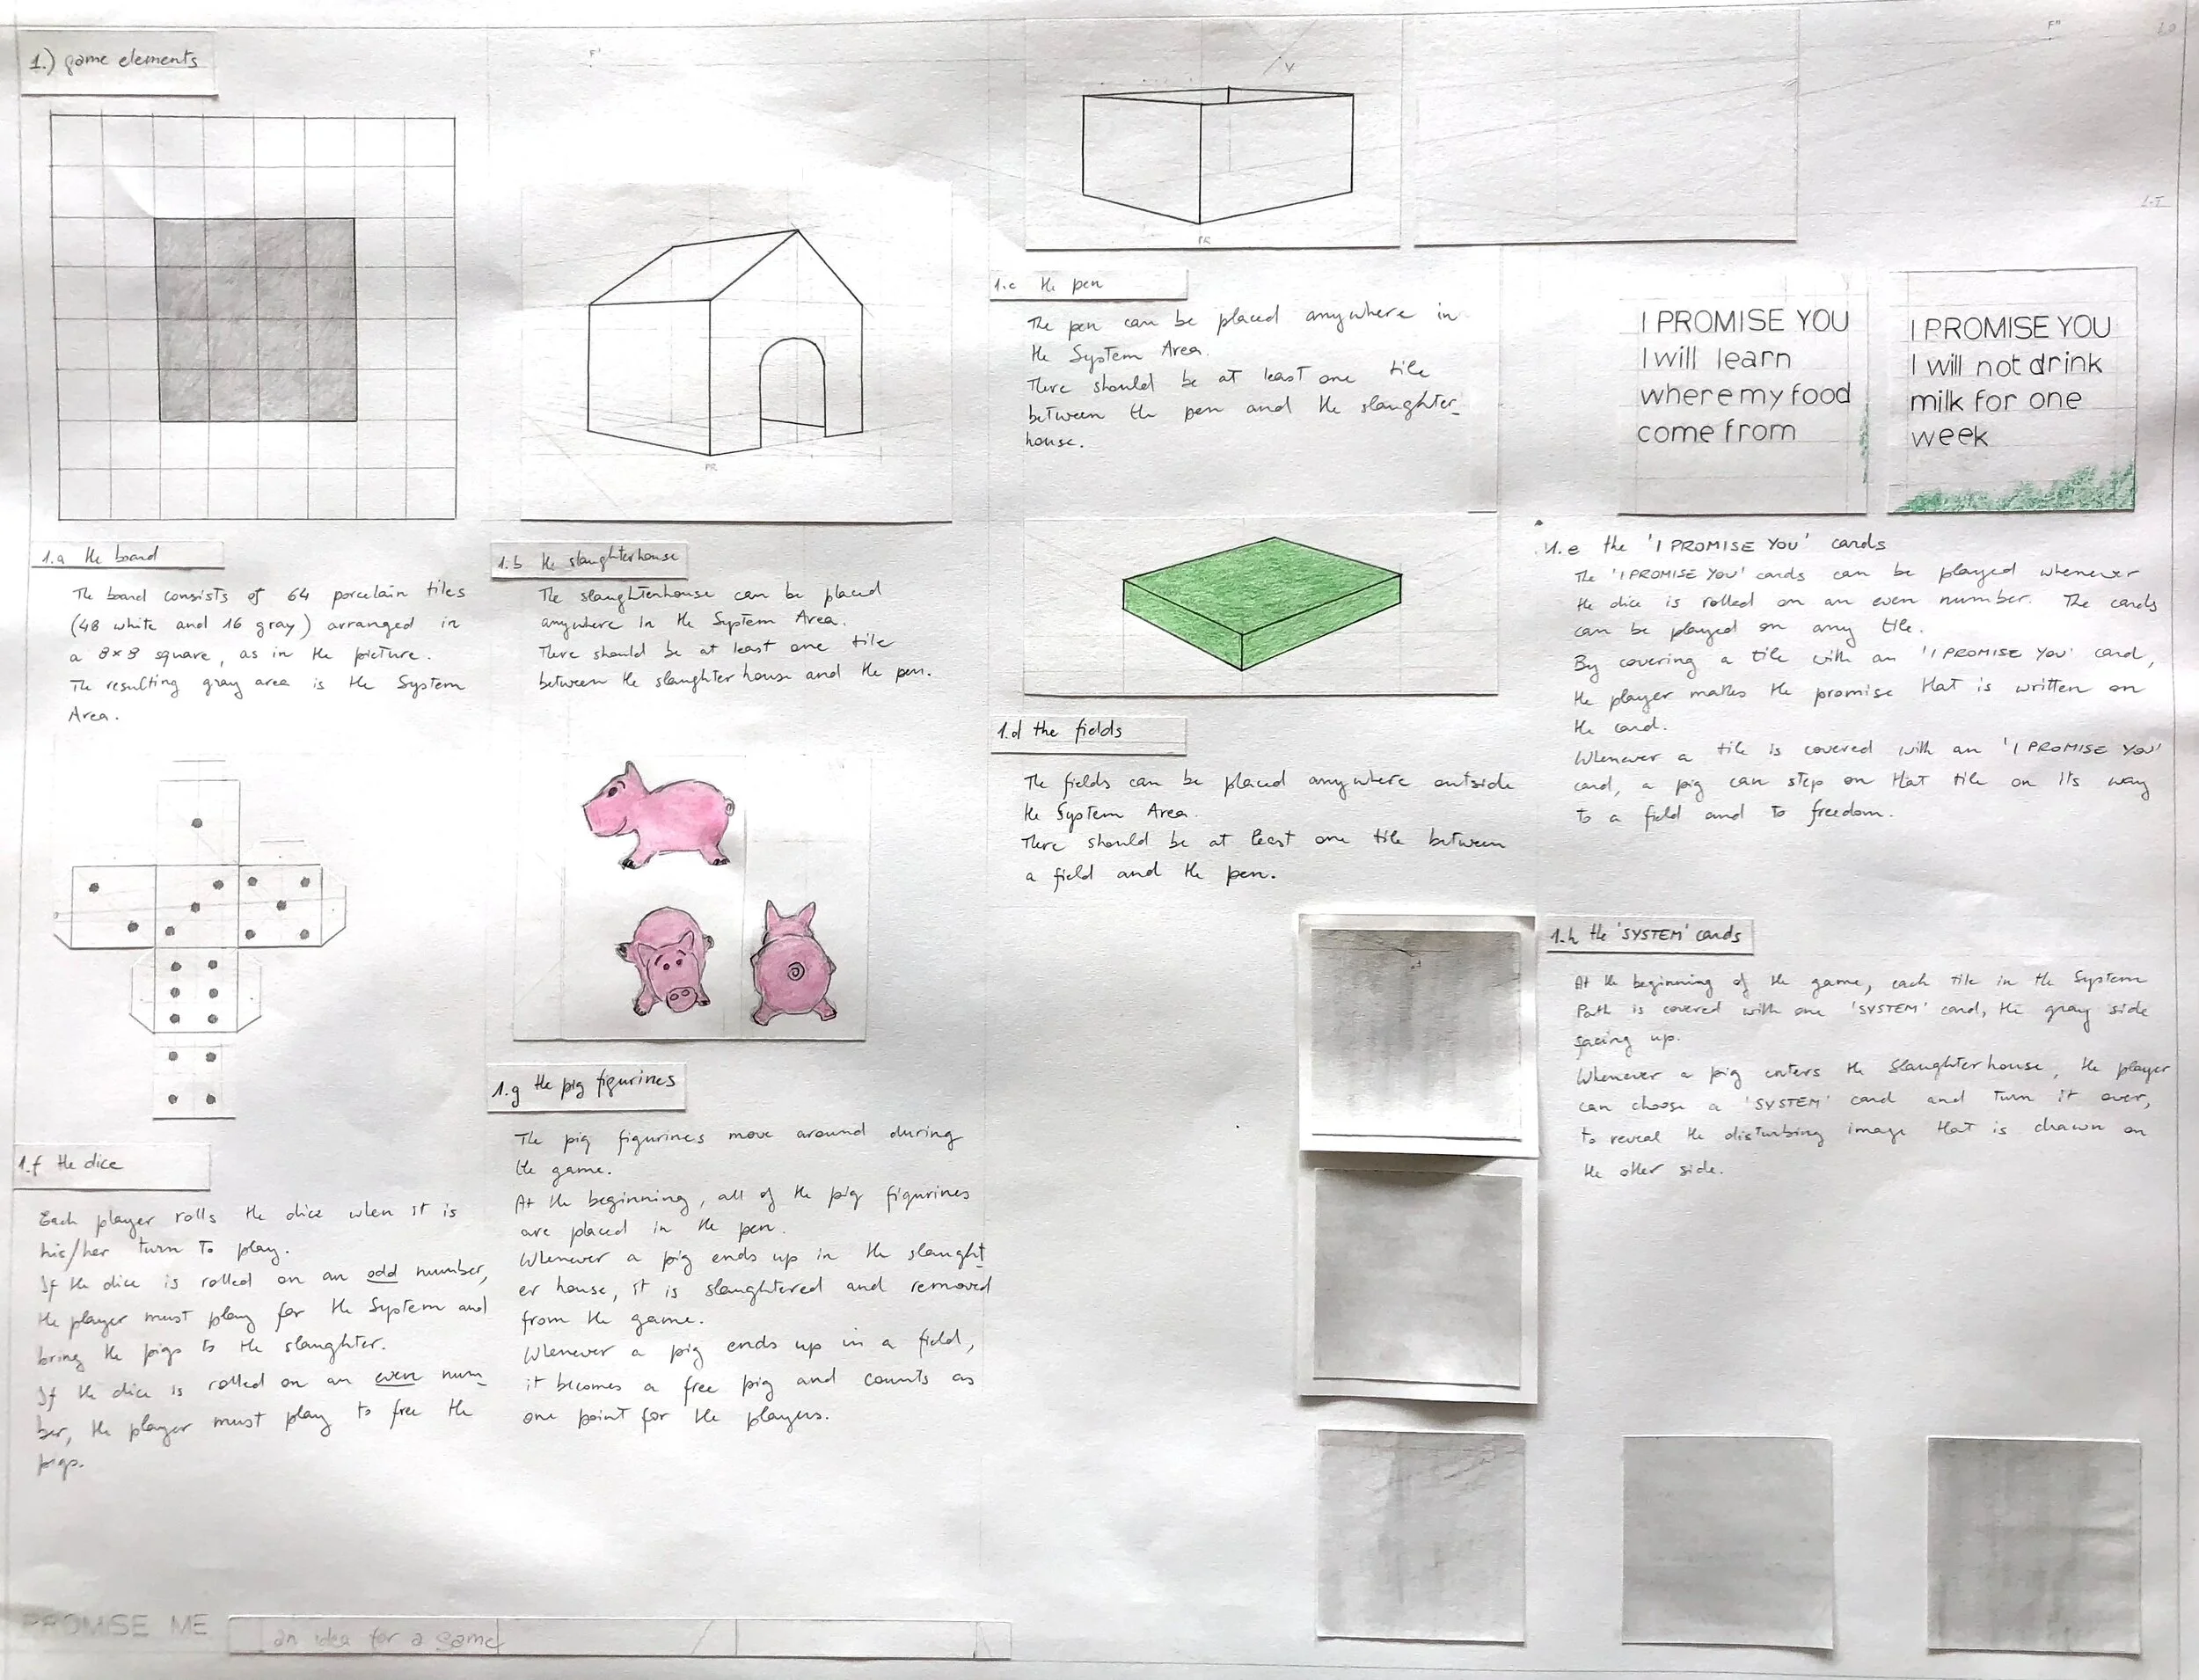 1.) game elements
F'
V
F"
L.O
L.T
PR
PR
1.a the board
The board consists of 64 porcelain tiles
(48 white and 16 gray) arranged in
a 8×8 square, as in the picture.
The resulting gray area is the System
Area.
1.b the slaughterhouse
The slaughterhouse can be placed
anywhere in the System Area.
There should be at least one tile
between the slaughterhouse and the pen.
1.c the pen
The pen can be placed anywhere in
the System Area.
There should be at least one tile
between the pen and the slaughter_
house.
1.d the fields
The fields can be placed anywhere outside
the System Area.
There should be at least one tile between
a field and the pen.
I PROMISE YOU
I will learn
where my food
come from
I PROMISE YOU
I will not drink
milk for one
week
1.e the 'I PROMISE YOU' cards
The 'I PROMISE YOU' cards can be played whenever
the dice is rolled on an even number. The cards
can be played on any tile.
By covering a tile with an 'I PROMISE YOU' card,
the player makes the promise that is written on
the card.
Whenever a tile is covered with an 'I PROMISE YOU'
card, a pig can step on that tile on its way
to a field and to freedom.
1.f the dice
Each player rolls the dice when it is
his/her turn to play.
If the dice is rolled on an odd number,
the player must play for the System and
bring the pigs to the slaughter.
If the dice is rolled on an even num_
ber, the player must play to free the
pigs.
1.g the pig figurines
The pig figurines move around during
the game.
At the beginning, all of the pig figurines
are placed in the pen.
Whenever a pig ends up in the slaught_
er house, it is slaughtered and removed
from the game.
Whenever a pig ends up in a field,
it becomes a free pig and counts as
one point for the players.
1.h the 'SYSTEM' cards
At the beginning of the game, each tile in the System
Path is covered with one 'SYSTEM' card, the gray side
facing up.
Whenever a pig enters the slaughterhouse, the player
can choose a 'SYSTEM' card and turn it over,
to reveal the disturbing image that is drawn on
the other side.
PROMISE ME
an idea for a game